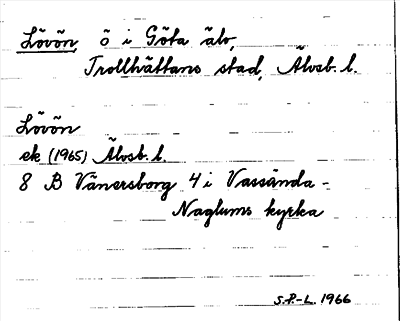 Lövön, ö i Göta älv,
Trollhättans stad, Älvsb. l.
Lövön
ek (1965) Älvsb. l.
8 B Vänersborg 4 i Vassända-
Naglums kyrka
S.P.-L. 1966